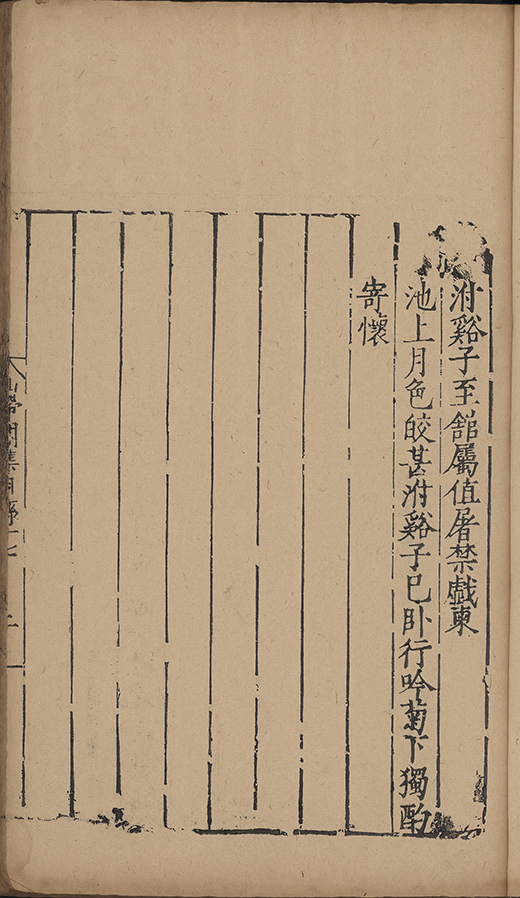 泭谿子至舘屬值屠禁戱柬
池上月色皎甚泭谿子已卧行吟菊下獨酌
寄懷
山帶閣集目